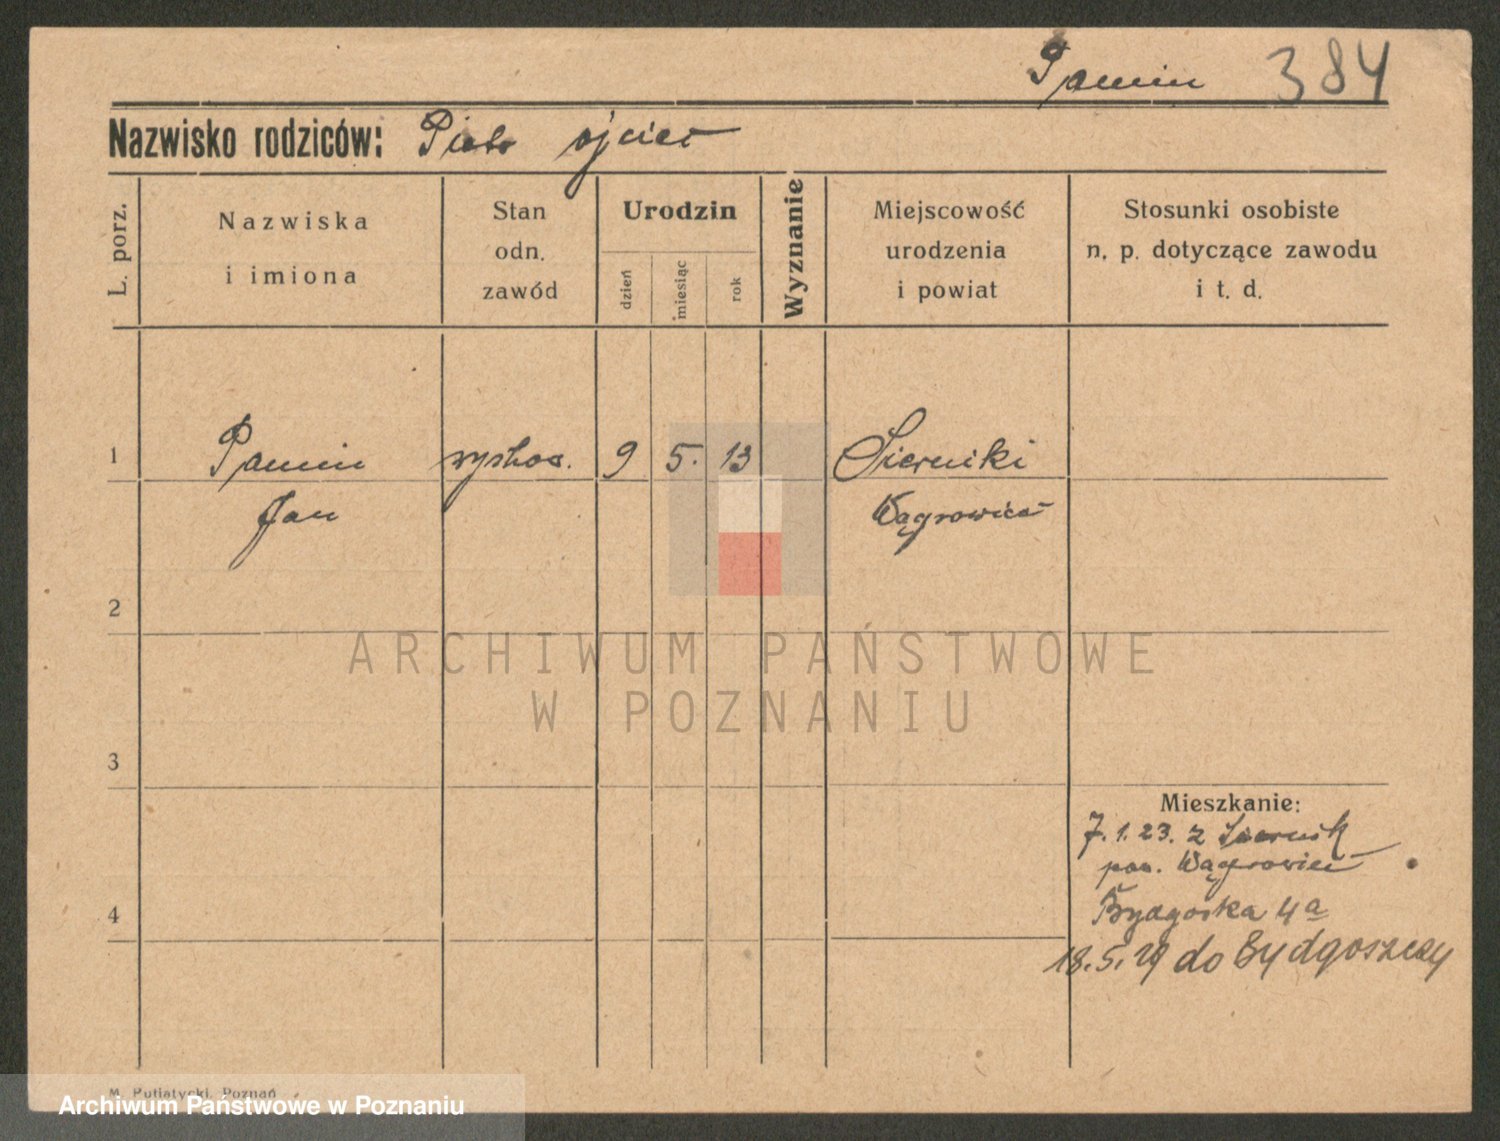 Pamin 384
Nazwisko rodziców: Piotr ojciec
L. porz.
Nazwiska
i imiona
Stan
odn.
zawód
Urodzin
dzień
miesiąc
rok
Wyznanie
Miejscowość
urodzenia
i powiat
Stosunki osobiste
n. p. dotyczące zawodu
i t. d.
1 Pamin 9 5. 13 Sierniki
Jan Wągrowiec
2
ARCHIWUM PAŃSTWOWE
W POZNANIU
3
Mieszkanie:
7.1.23. z Siernik
pow. Wągrowiec
4
Bydgoska 4a
18.5.29 do Bydgoszczy
M. Putiatycki, Poznań
Archiwum Państwowe w Poznaniu